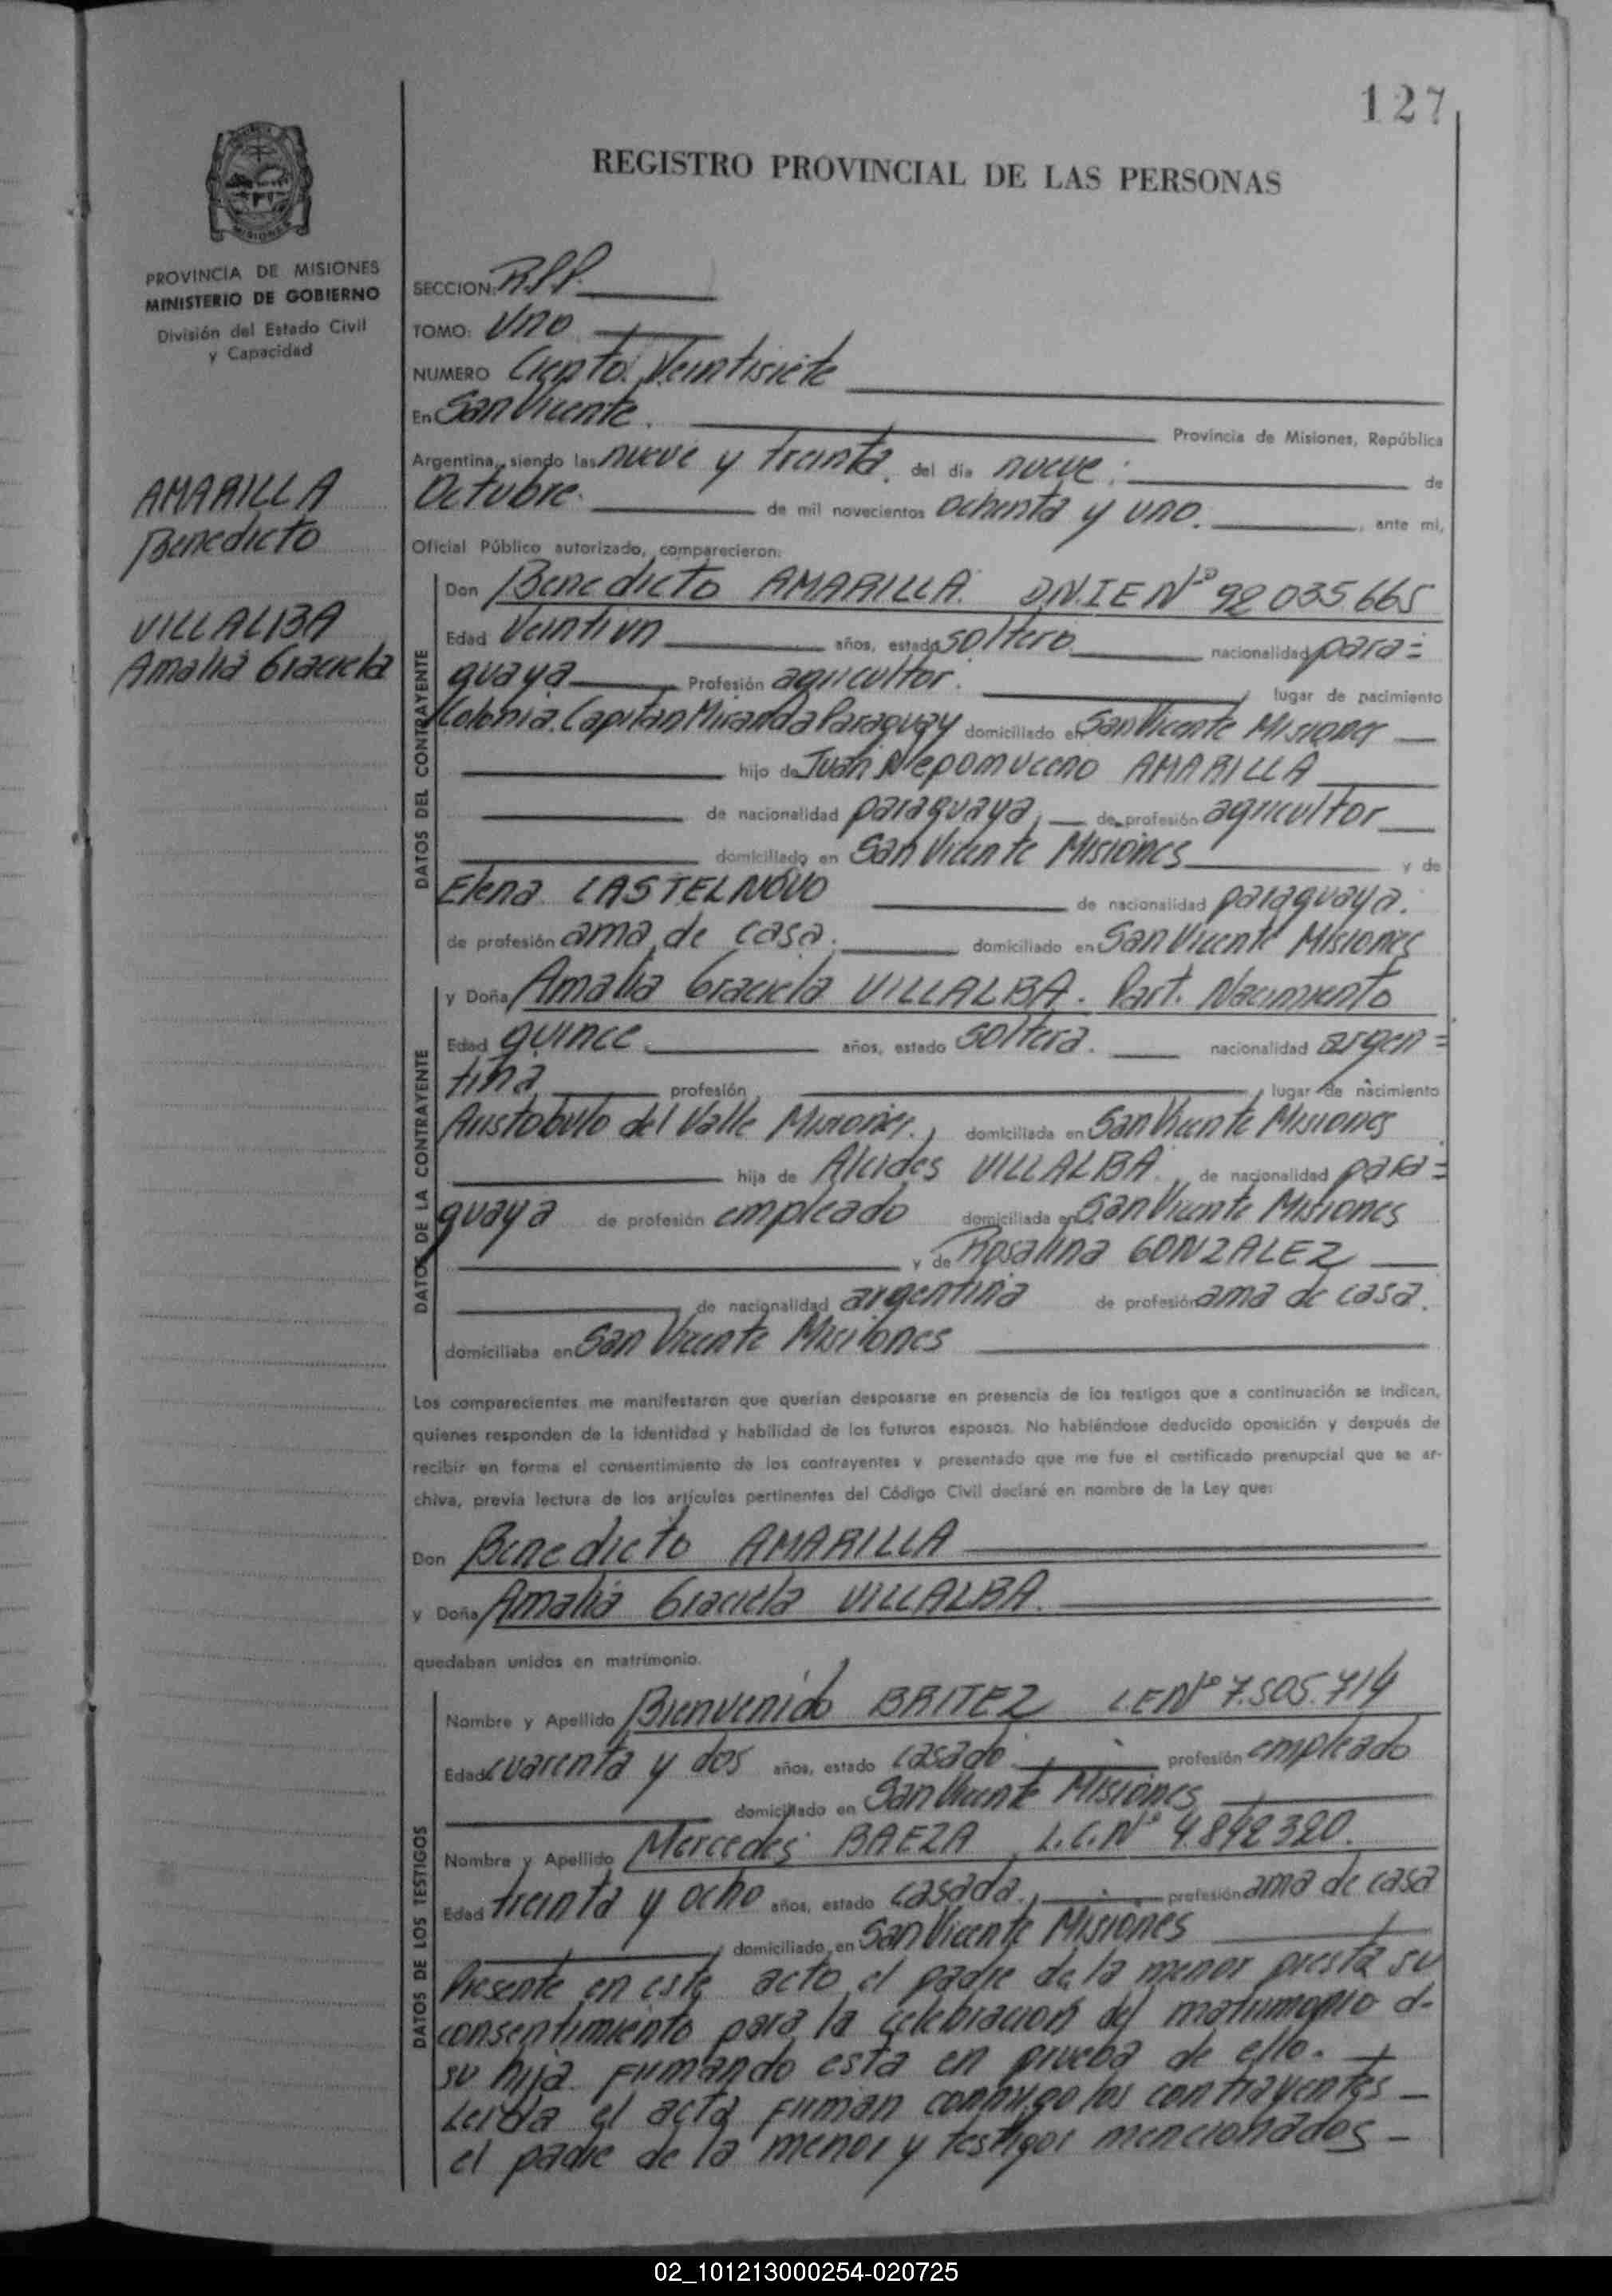 127
REGISTRO PROVINCIAL DE LAS PERSONAS
MISIONES
PROVINCIA DE MISIONES
MINISTERIO DE GOBIERNO
División del Estado Civil
y Capacidad
AMARILLA
Benedicto
VILLALBA
Amalia Graciela
SECCION: R.P.P.
TOMO: Uno
NUMERO Ciento Veintisiete
En San Vicente. Provincia de Misiones, República
Argentina, siendo las nueve y treinta. del día nueve: de
Octubre. de mil novecientos ochenta y uno. , ante mi,
Oficial Público autorizado, comparecieron:
DATOS DEL CONTRAYENTE
Don Benedicto AMARILLA. DNIE Nº 92 035.665
Edad Veintiun años, estado soltero nacionalidad para=
guaya Profesión agricultor. , lugar de nacimiento
Colonia Capitan Miranda Paraguay domiciliado en San Vicente Misiones
hijo de Juan Nepomuceno AMARILLA
de nacionalidad paraguaya, de profesión agricultor
domiciliado en San Vicente Misiones y de
Elena CASTELNOVO de nacionalidad paraguaya.
de profesión ama de casa. domiciliado en San Vicente Misiones
DATOS DE LA CONTRAYENTE
y Doña Amalia Graciela VILLALBA. Part. Nacimiento
Edad quince. años, estado soltera. nacionalidad argen=
tina profesión , lugar de nacimiento
Aristobulo del Valle Misiones., domiciliada en San Vicente Misiones
hija de Alcides VILLALBA., de nacionalidad para=
guaya de profesión empleado domiciliada en San Vicente Misiones
y de Rosalina GONZALEZ
, de nacionalidad argentina de profesión ama de casa.
domiciliaba en San Vicente Misiones
Los comparecientes me manifestaron que querían desposarse en presencia de los testigos que a continuación se indican,
quienes responden de la identidad y habilidad de los futuros esposos. No habiéndose deducido oposición y después de
recibir en forma el consentimiento de los contrayentes y presentado que me fue el certificado prenupcial que se ar-
chiva, previa lectura de los artículos pertinentes del Código Civil declaré en nombre de la Ley que:
Don Benedicto AMARILLA
y Doña Amalia Graciela VILLALBA.
quedaban unidos en matrimonio.
DATOS DE LOS TESTIGOS
Nombre y Apellido Bienvenido BRITEZ L.E Nº 7.505.714
Edad cuarenta y dos años, estado casado , profesión empleado
domiciliado en San Vicente Misiones
Nombre y Apellido Mercedes BAEZA L.C. Nº 4.842320.
Edad treinta y ocho años, estado casada., profesión ama de casa
, domiciliado en San Vicente Misiones
Presente en este acto el padre de la menor presta su
consentimiento para la celebracion del matrimonio d-
su hija firmando esta en prueba de ello.
Leida el acta firman conmigo los contrayentes
el padre de la menor y testigos mencionados
02_101213000254-020725